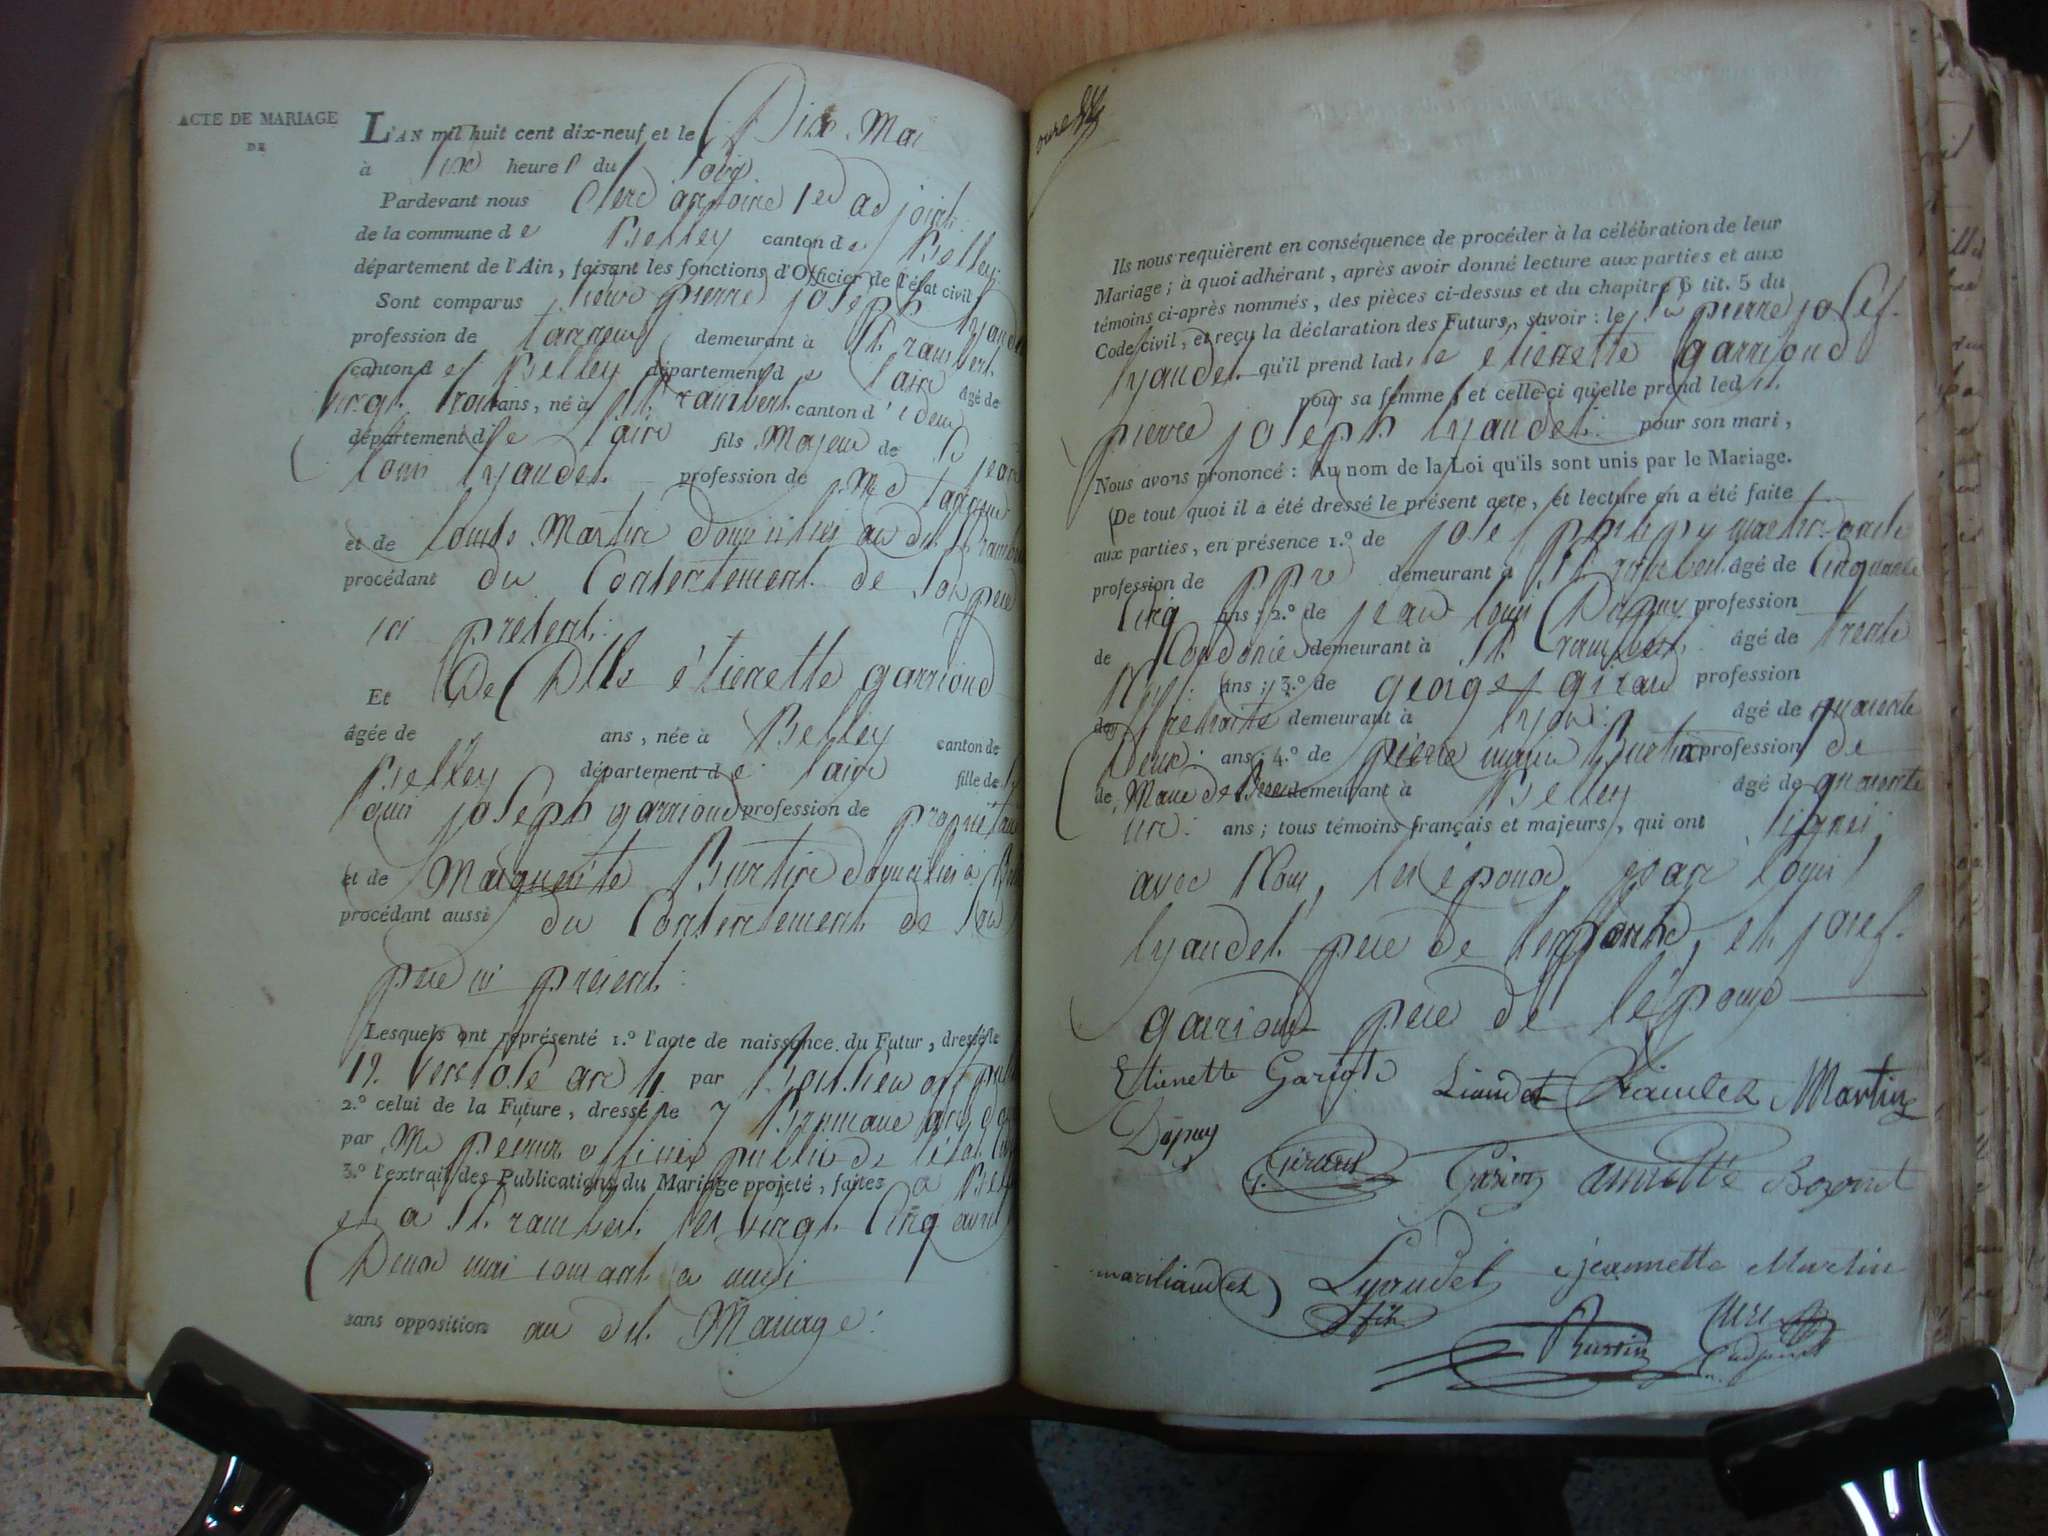 ACTE DE MARIAGE
DE
L'AN mil huit cent dix-neuf et le Dix Mai
à six heures du soir
Pardevant nous Clerc antoine 1er adjoint
de la commune de Belley canton de Belley
département de l'Ain, faisant les fonctions d'Officier de l'état civil.
Sont comparus sieur pierre joseph lyaudet
profession de tanneur demeurant à St. rambert
canton de Belley département de lain âgé de
vingt trois ans, né à St. rambert canton d' idem
département de lain fils Majeur de Sr jean
louis lyaudet profession de Md tanneur
et de Martin domiciliés au dit St rambert
procédant du Consentement de Son pere
ici présent.
Et De Dlle étienette garriond
âgée de ans, née à Belley canton de
Belley département de lain fille de
louis joseph garriond profession de propriétaire
et de Marguerite Burtin domiciliés à
procédant aussi du Consentement de Son
pere ici présent.
Lesquels ont représenté 1.º l'acte de naissance du Futur, dressé le
19. Ventose an 4. par
2.º celui de la Future, dressé le 7 Brumaire an
par Mr officier public de l'état
3.º l'extrait des Publications du Mariage projeté, faites à
et à St. rambert les vingt Cinq avril
Deux mai courant à midi
sans opposition au dit Mariage.
Ils nous requièrent en conséquence de procéder à la célébration de leur
Mariage; à quoi adhérant, après avoir donné lecture aux parties et aux
témoins ci-après nommés, des pièces ci-dessus et du chapitre 6 tit. 5 du
Code civil, et reçu la déclaration des Futurs, savoir: le Sr pierre josef
lyaudet qu'il prend lad. étienette garriond
pour sa femme, et celle-ci qu'elle prend led. Sr.
pierre joseph lyaudet pour son mari,
Nous avons prononcé: Au nom de la Loi qu'ils sont unis par le Mariage.
De tout quoi il a été dressé le présent acte, et lecture en a été faite
aux parties, en présence 1.º de josef martin oncle
profession de ppre demeurant à St. rambert âgé de Cinquante
Cinq ans; 2.º de jean louis Dupuy profession
de Cordonier demeurant à St. rambert âgé de trente
Neuf ans; 3.º de georges giraud profession
de retraité demeurant à lyon âgé de quarante
Deux ans; 4.º de pierre marie Burtin profession de
de Demeurant à Belley âgé de quarante
un ans; tous témoins français et majeurs, qui ont signés,
avec Nous, les époux, jean louis
lyaudet pere de lepoux, et josef
garriond pere de l'épouse
Etienette Gariot Liaudet Martin
Dupuy
Giraud annette Bozonet
Lyaudet fils jeannette Martin
Burtin Clerc adjoint